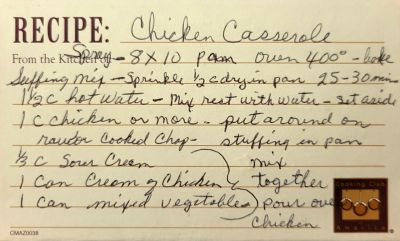 RECIPE: Chicken Casserole
From the Kitchen of Spray - 8 x 10 pam oven 400° - bake
Suffing mix - Sprinkle ½ dry in pan 25-30 min
1 ½ C hot water - mix rest with water - set aside
1 C chicken or more - put around on
raw or cooked Chop - stuffing in pan
½ C Sour Cream mix
1 Can Cream of Chicken together
1 Can mixed vegetables pour over
chicken
Cooking Club
America
CMAZ0038